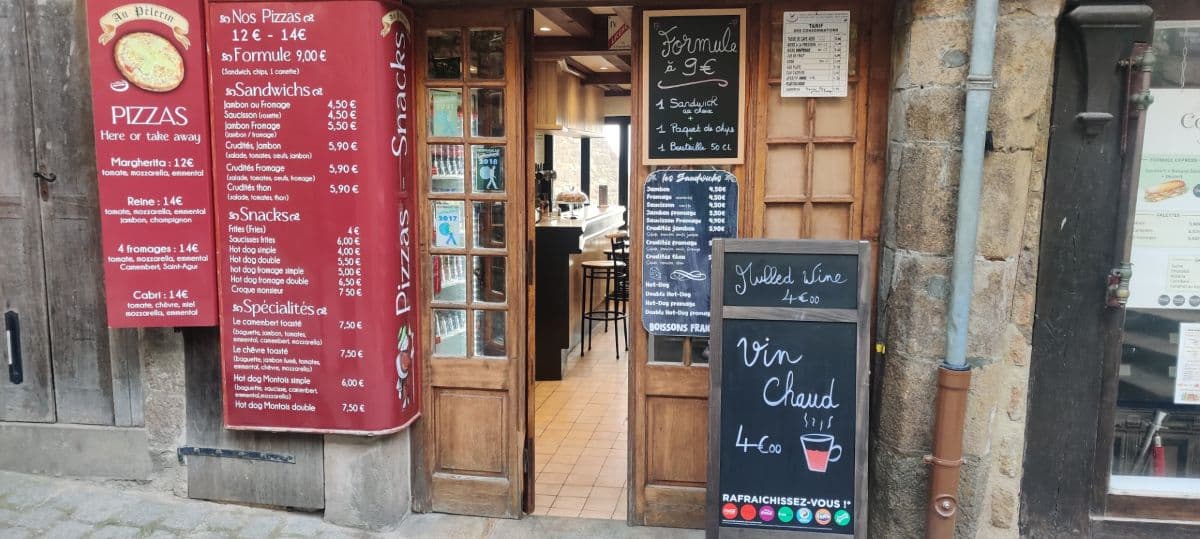 Au Pèlerin
PIZZAS
Here or take away
Margherita : 12€
tomate, mozzarella, emmental
Reine : 14€
tomate, mozzarella, emmental
jambon, champignon
4 fromages : 14€
tomate, mozzarella, emmental
Camembert, Saint-Agur
Cabri : 14€
tomate, chèvre, miel
mozzarella, emmental
Nos Pizzas
12 € - 14€
Formule 9,00€
(Sandwich, chips, 1 canette)
Sandwichs
Jambon ou Fromage 4,50 €
Saucisson (rosette) 4,50 €
Jambon Fromage 5,50 €
(jambon / fromage)
Crudités Jambon 5,90 €
(salade, tomates, oeufs, jambon)
Crudités Fromage 5,90 €
(salade, tomates, oeufs, fromage)
Crudités thon 5,90 €
(salade, tomates, thon)
Snacks
Frites (Fries) 4 €
Saucisses frites 6,00 €
Hot dog simple 4,00 €
Hot dog double 5,50 €
Hot dog fromage simple 5,00 €
Hot dog fromage double 6,50 €
Croque monsieur 7 50€
Spécialités
Le camembert toasté 7,50 €
(baguette, jambon, tomates,
emmental, camembert, mozzarella)
Le chêvre toasté 7,50 €
(baguette, jambon fumé, tomates,
emmental, mozzarella)
Hot dog Montois simple 6,00 €
(baguette, saucisse, camembert,
emmental, mozzarella)
Hot dog Montois double 7,50 €
Pizzas - Snacks
2018
2017
Formule
à 9€
1 Sandwich
au choix
+
1 Paquet de chips
+
1 Bouteille 50 CL
TARIF
DES CONSOMMATIONS
Les Sandwichs
Jambon 4,50€
Fromage 4,50€
Saucisson 4,50€
Jambon fromage 5,50€
Saucisson fromage
Crudités jambon
Crudités fromage
Crudités thon
Hot-Dog
Double Hot-Dog
Hot-Dog fromage
Double Hot-Dog fromage
BOISSONS FRAI
Mulled Wine
4€00
Vin
Chaud
4€00
RAFRAICHISSEZ-VOUS !*